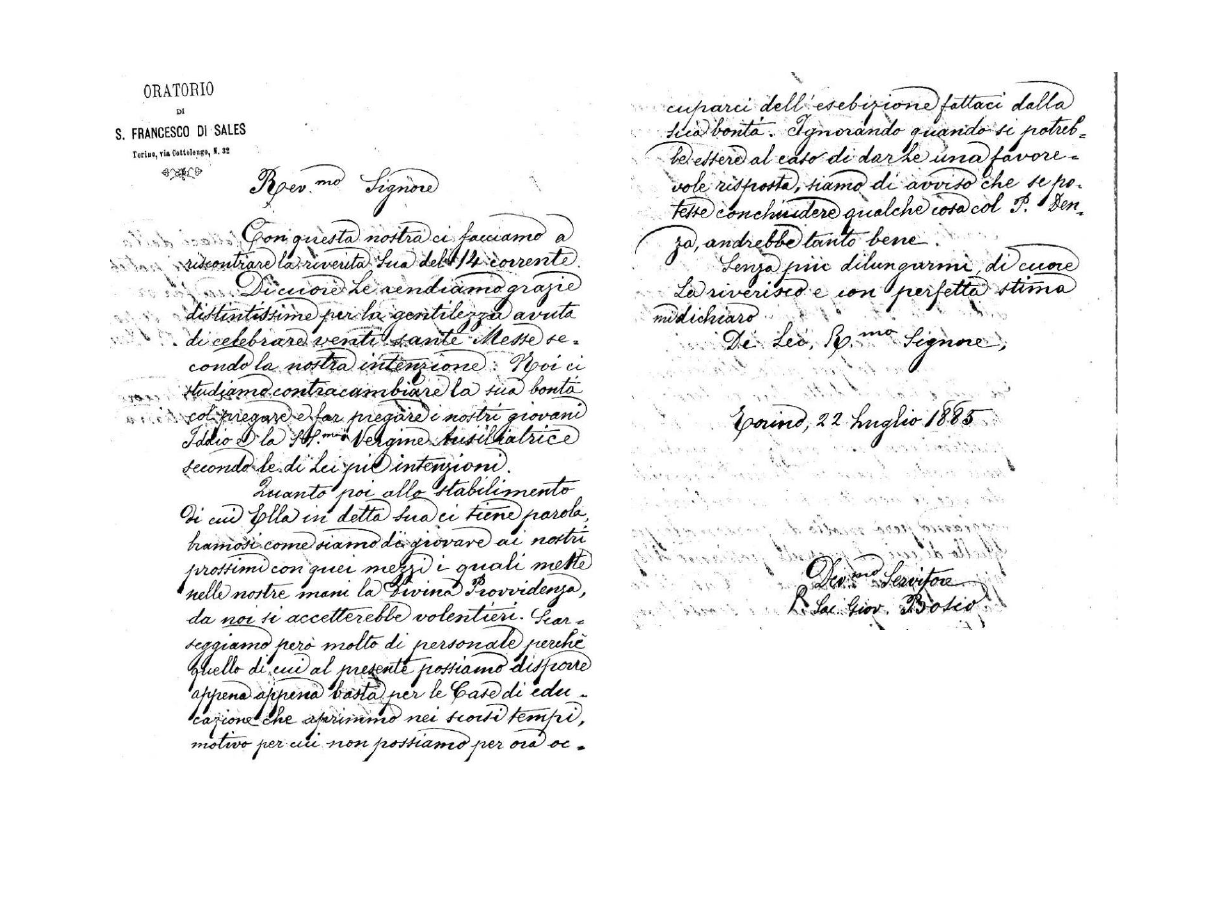 ORATORIO
DI
S. FRANCESCO DI SALES
Torino, via Cottolengo, N. 32
Rev.mo Signore
Con questa nostra ci facciamo a
riscontrare la riverita Sua del 14 corrente.
Di cuore Le rendiamo grazie
distintissime per la gentilezza avuta
di celebrare venti sante Messe se-
condo la nostra intenzione. Noi ci
studiamo contracambiare la sua bontà
col pregare e far pregare i nostri giovani
Iddio e la SS.ma Vergine Ausiliatrice
secondo le di Lei pie intenzioni.
Quanto poi allo stabilimento
di cui Ella in detta Sua ci tiene parola,
bramosi come siamo di giovare ai nostri
prossimi con quei mezzi i quali mette
nelle nostre mani la Divina Provvidenza,
da noi si accetterebbe volentieri. Scar-
seggiamo però molto di personale perchè
quello di cui al presente possiamo disporre
appena appena basta per le Case di edu-
cazione che aprimmo nei scorsi tempi,
motivo per cui non possiamo per ora oc-
cuparci dell'esebizione fattaci dalla
sua bontà. Ignorando quando si potreb-
be essere al caso di darLe una favore-
vole risposta, siamo di avviso che se po-
tesse conchiudere qualche cosa col P. Den-
za, andrebbe tanto bene.
Senza più dilungarmi, di cuore
La riverisco e con perfetta stima
mi dichiaro
Di Lei, R.mo Signore,
Torino, 22 Luglio 1885
Dev.mo Servitore
Sac. Giov. Bosco